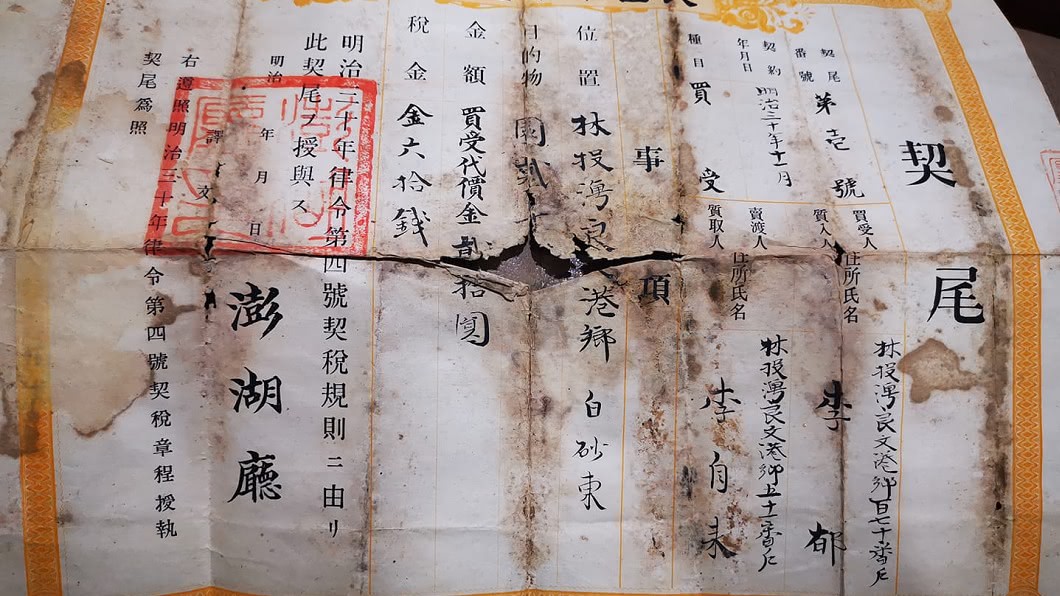 契尾
買受人
質入人
住所氏名
林投灣良文港鄉百七十番戶
李郁
賣渡人
質取人
住所氏名
林投灣良文港鄉五十一番戶
李自未
契尾番號
第壱號
契約年月日
明治三十年十一月
種目
買受
事項
位置
林投灣良 港鄉白砂東
目的物
園
金額
買受代價金貳拾圓
稅金
金六拾錢
明治三十年律令第四號契稅規則ニ由リ
此契尾ヲ授與ス
明治 年 月 日
澎湖廳
譯文
右遵照明治三十年律令第四號契稅章程授執
契尾為照